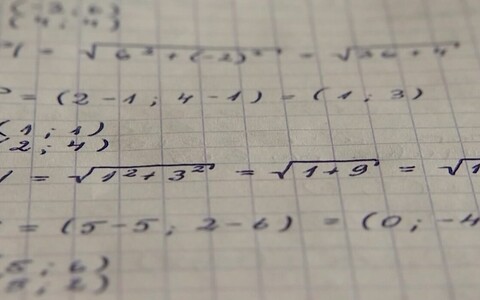 (-3; 6)
(4; 4)
= √6² + (-2)² = √36 + 4
= (2-1; 4-1) = (1; 3)
(1; 1)
2; 4)
= √1² + 3² = √1 + 9 = √1
= (5-5; 2-6) = (0; -4
(5; 6)
5; 2)